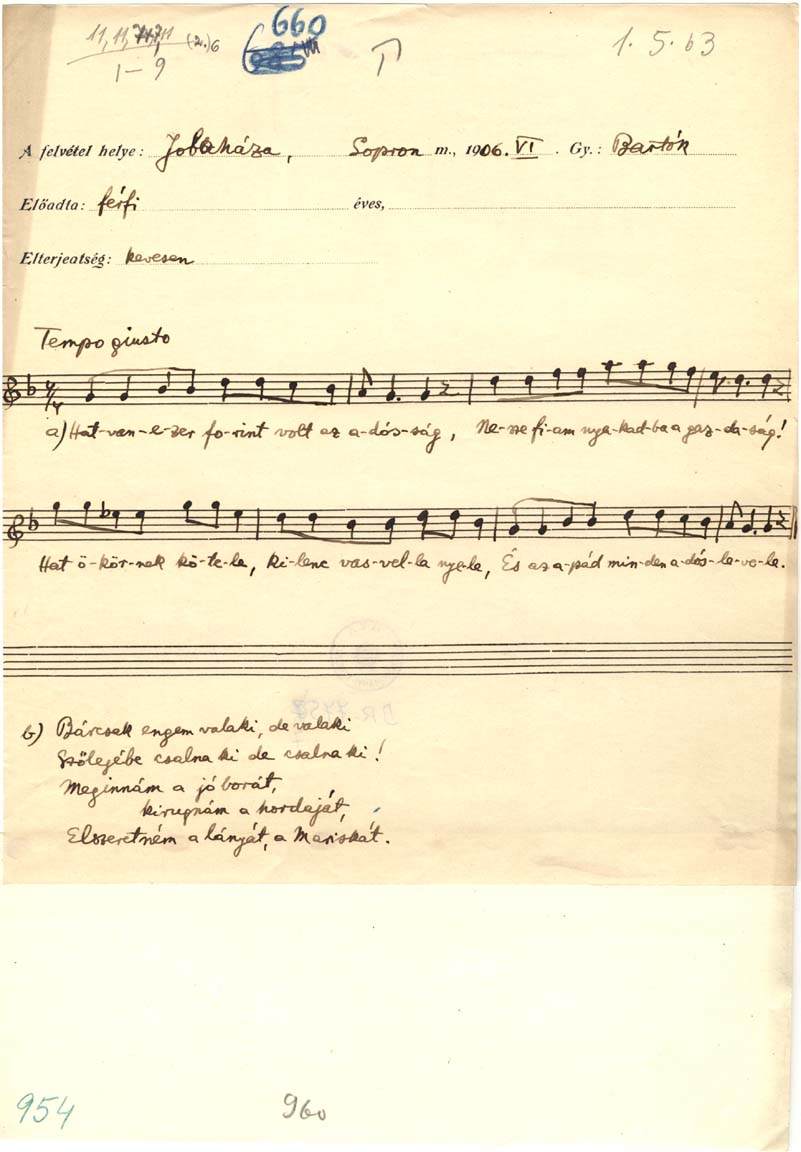 11, 11, 7, 7, 11 (2.) 6
1 – 9
660
1.5.63
A felvétel helye: Jobaháza, Sopron m., 1906. VI. Gy.: Bartók
Előadta: férfi éves,
Elterjeatség: kevesen
Tempo giusto
a) Hat-van-e-zer fo-rint volt az a-dós-ság, Ne-sze fi-am nya-kad-ba a gaz-da-ság!
Hat ö-kör-nek kö-te-le, ki-lenc vas-vel-la nye-le, És az a-pád min-den a-dós-le-ve-le.
b) Bárcsak engem valaki, de valaki
Szőlejébe csalna ki de csalna ki!
Meginnám a jó borát,
kirugnám a hordaját,
Elszeretném a lányát, a Mariskát.
954 960